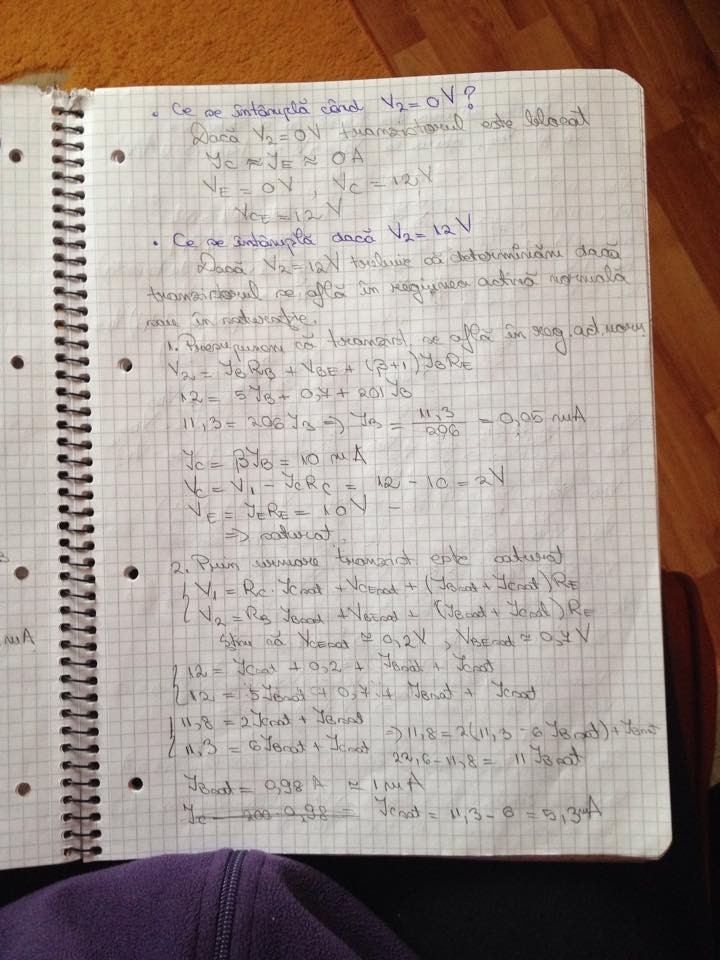 • Ce se întâmplă când V2 = 0V?
Dacă V2 = 0V tranzistorul este blocat
IC ≈ IE ≈ 0A
VE = 0V, VC = 12V
VCE = 12V
• Ce se întâmplă dacă V2 = 12V
Dacă V2 = 12V trebuie să determinăm dacă
tranzistorul se află în regiunea activă normală
sau în saturație.
1. Presupunem că tranzist. se află în reg. act. norm.
V2 = IBRB + VBE + (β+1)IBRE
12 = 5IB + 0,7 + 201IB
11,3 = 206IB ⇒ IB = 11,3/206 = 0,05 mA
IC = βIB = 10 mA
VC = V1 - ICRC = 12 - 10 = 2V
VE = IERE = 10V
⇒ saturat.
2. Prin urmare tranzist este saturat
V1 = RC · ICsat + VCEsat + (IBsat + ICsat)RE
V2 = RB IBsat + VBEsat + (IBsat + ICsat)RE
Știm că VCEsat ≈ 0,2V, VBEsat ≈ 0,7V
12 = ICsat + 0,2 + IBsat + ICsat
12 = 5IBsat + 0,7 + IBsat + ICsat
11,8 = 2ICsat + IBsat ⇒ 11,8 = 2(11,3 - 6IBsat) + IBsat
11,3 = 6IBsat + ICsat 22,6 - 11,8 = 11IBsat
IBsat = 0,98 A ≈ 1mA
IC = 200 · 0,98 = ICsat = 11,3 - 6 = 5,3mA
mA